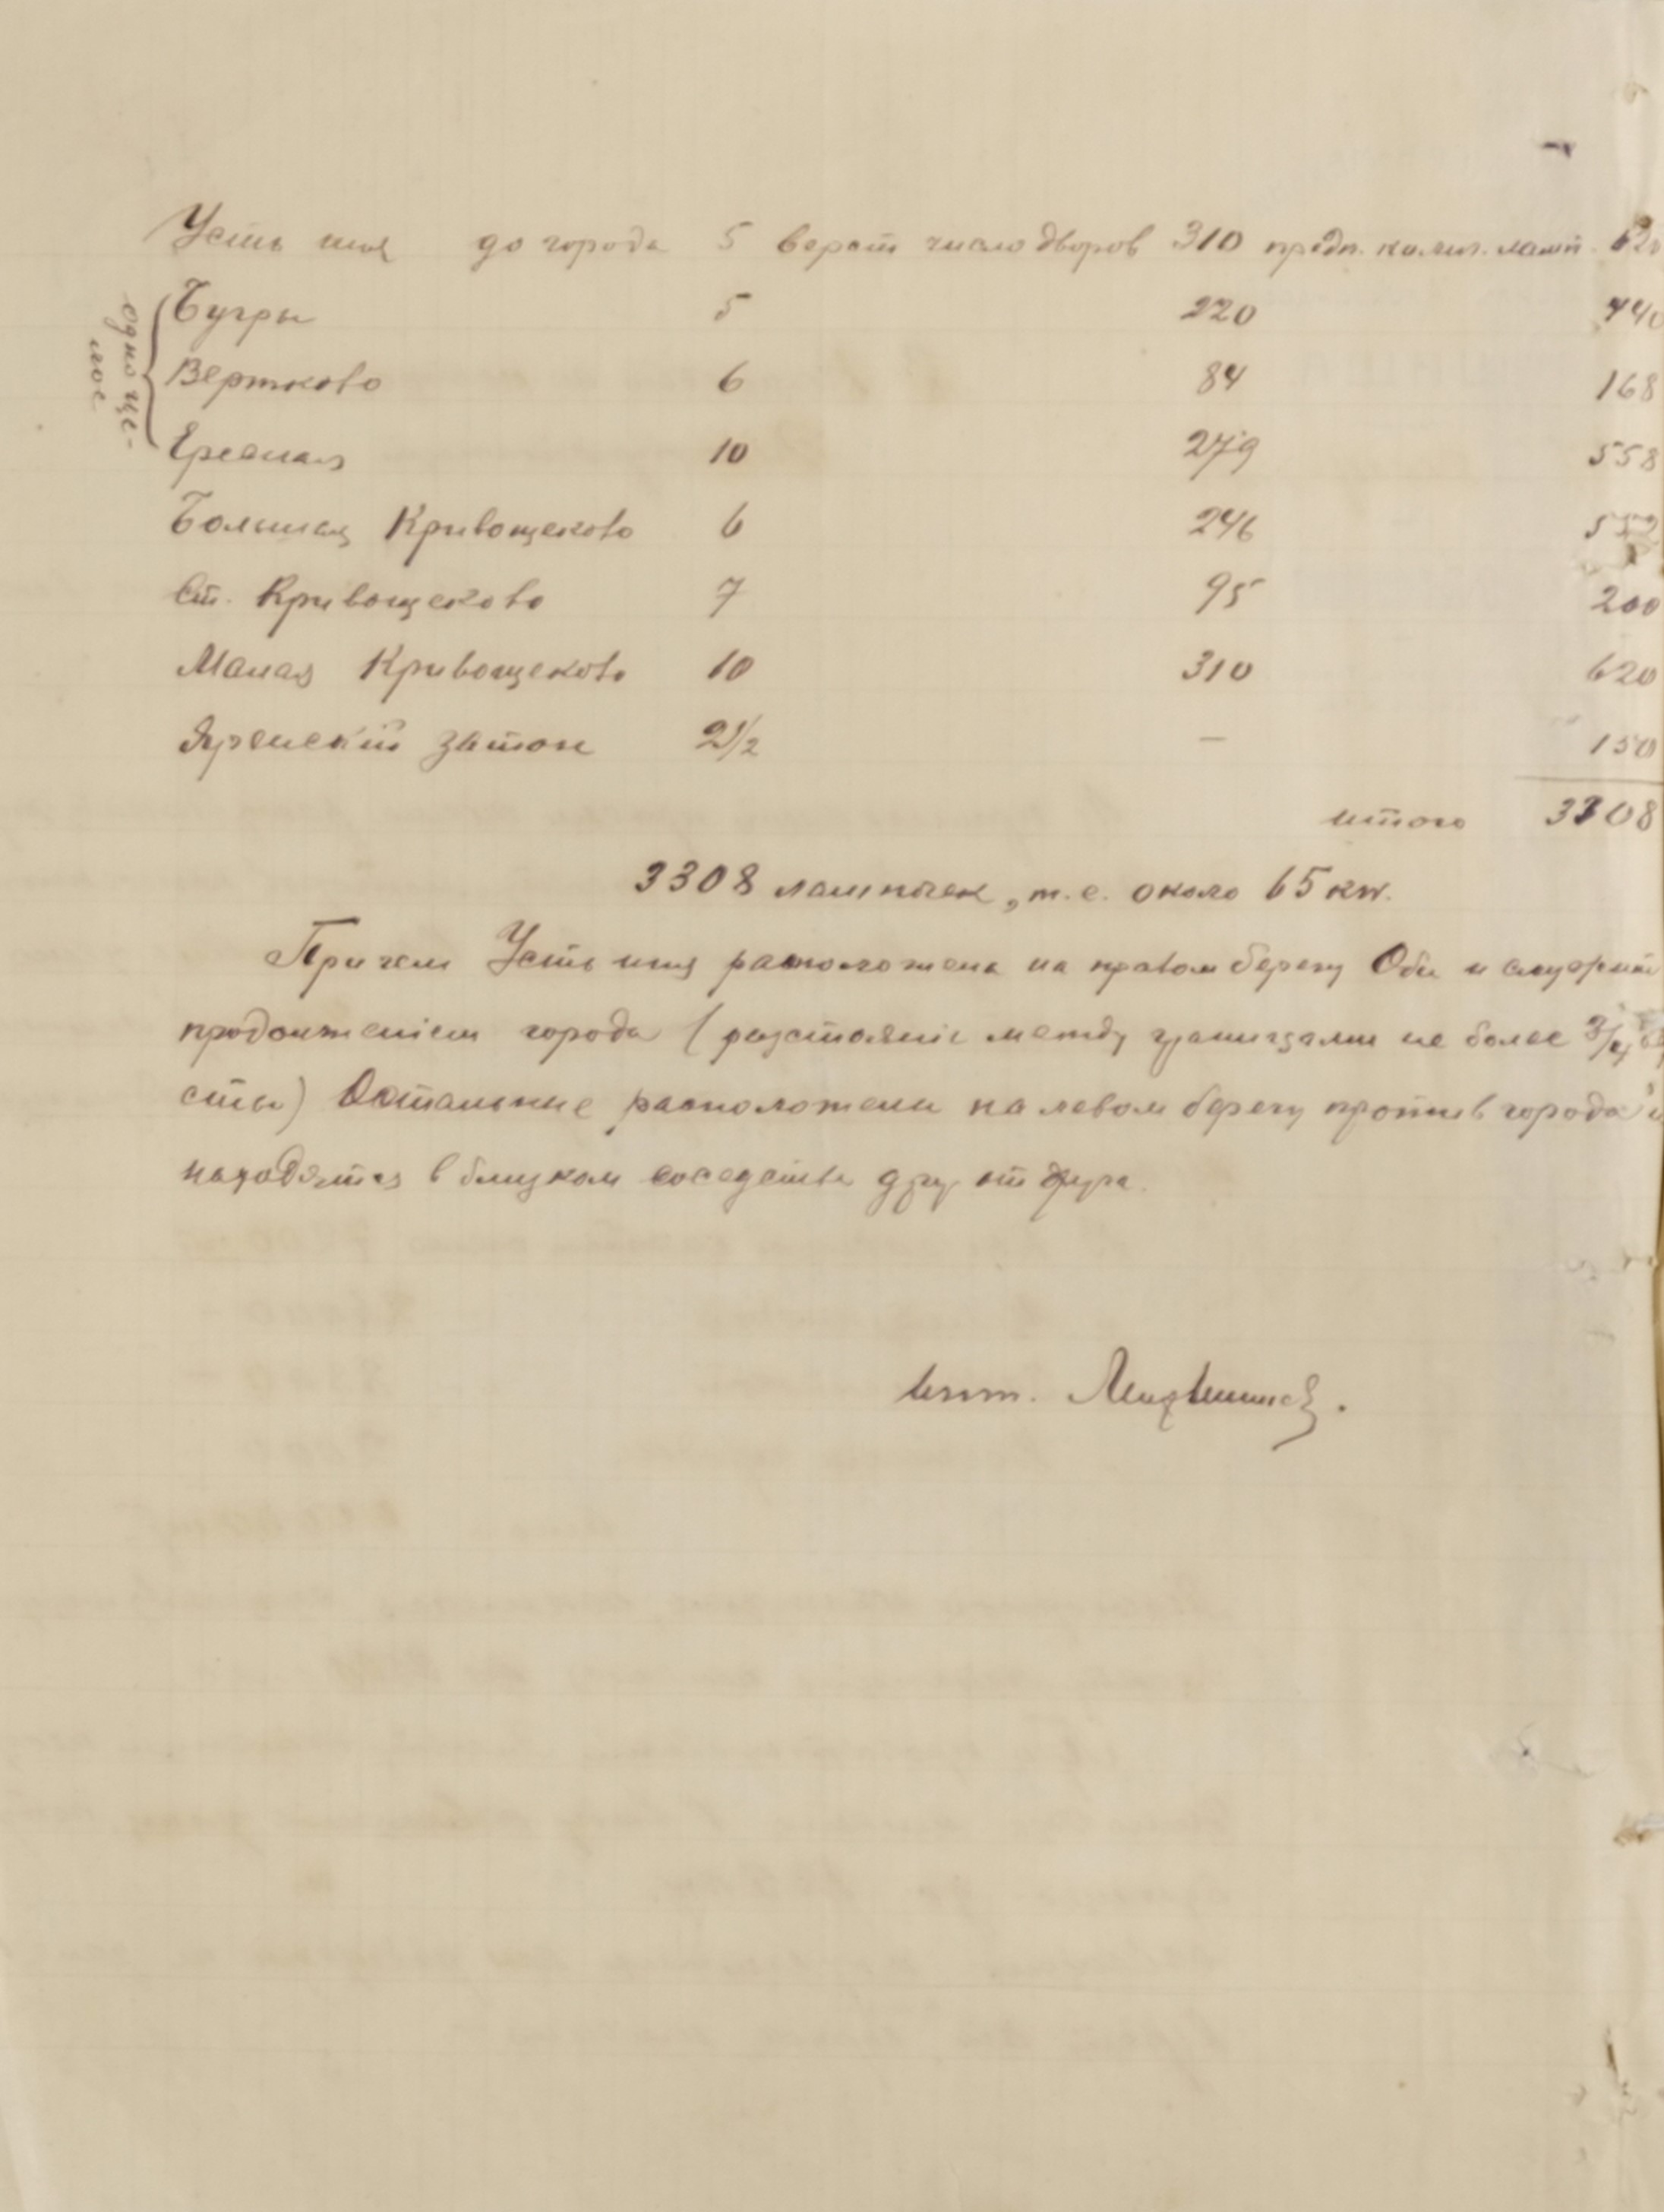 Усть иня до города 5 верст число дворов 310 предп. колич. ламп. 620
Бугры 5 220 440
одно це-
лое
Вертково 6 84 168
Ересная 10 279 558
Большая Кривощеково 6 246 552
Ст. Кривощеково 7 95 200
Малая Кривощеково 10 310 620
Яренский затон 2 1/2 — 150
итого 3308
3308 лампочек, т. е. около 65 kw.
Причем Усть иня расположена на правом берегу Оби и служит
продолжением города (разстояние между границами не более 3/4 вер
сты) Остальные расположены на левом берегу против города и
находятся в близком соседстве друг от друга.
инж.